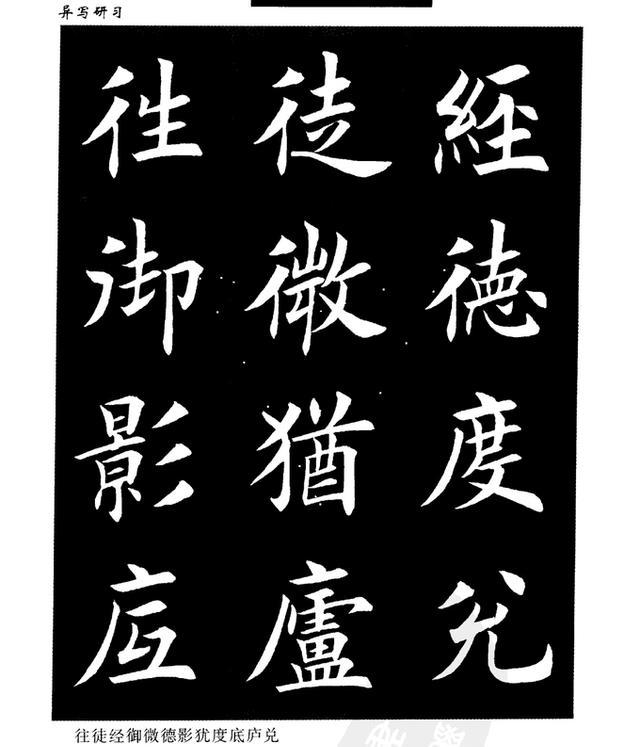 异写研习
往徒經
御微德
影猶度
底廬兑
往徒经御微德影犹度底庐兑